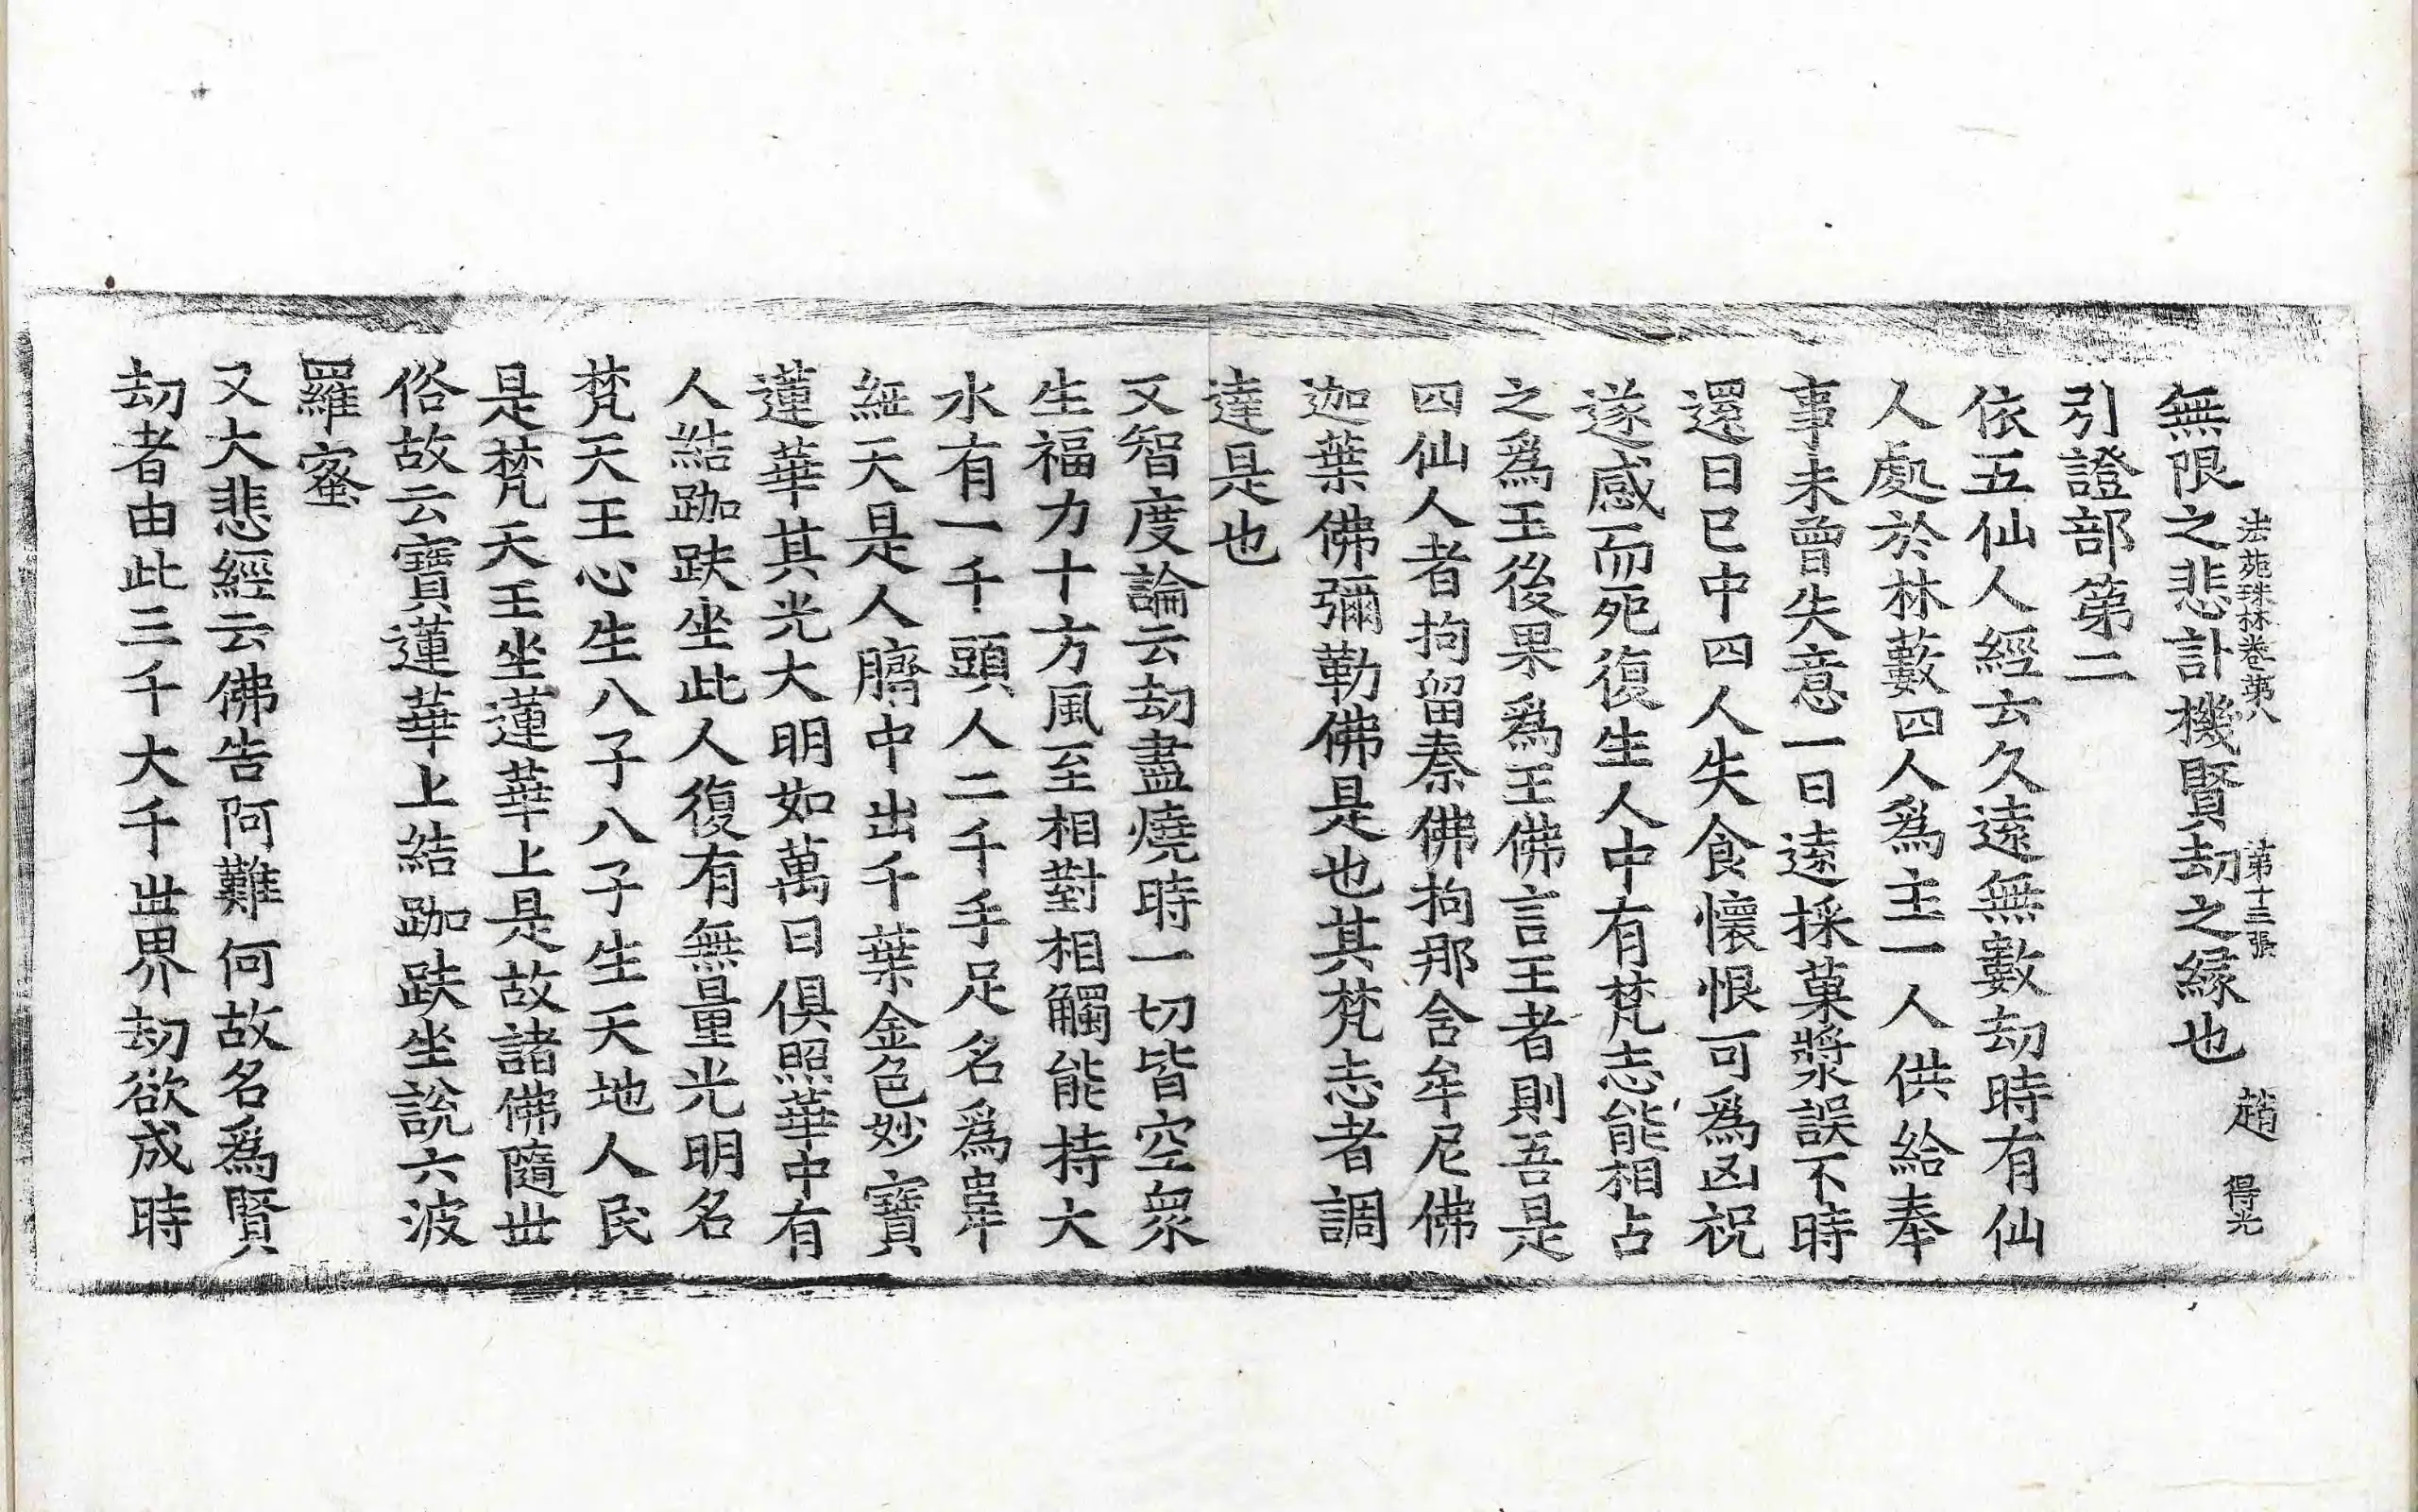 法苑珠林卷第八 第十三張 趙 得光
無限之悲訃機賢劫之緣也
引證部第二
依五仙人經云久遠無數劫時有仙
人處於林藪四人爲主一人供給奉
事未曾失意一日遠採菓漿誤不時
還日已中四人失食懷恨可爲凶祝
遂感而死復生人中有梵志能相占
之爲王後果爲王佛言王者則吾是
四仙人者拘留秦佛拘那含牟尼佛
迦葉佛彌勒佛是也其梵志者調
達是也
又智度論云劫盡燒時一切皆空衆
生福力十方風至相對相觸能持大
水有一千頭人二千手足名爲韋
紐天是人臍中出千葉金色妙寶
蓮華其光大明如萬日俱照華中有
人結跏趺坐此人復有無量光明名
梵天王心生八子八子生天地人民
是梵天王坐蓮華上是故諸佛隨世
俗故云寶蓮華上結跏趺坐說六波
羅蜜
又大悲經云佛告阿難何故名爲賢
劫者由此三千大千世界劫欲成時